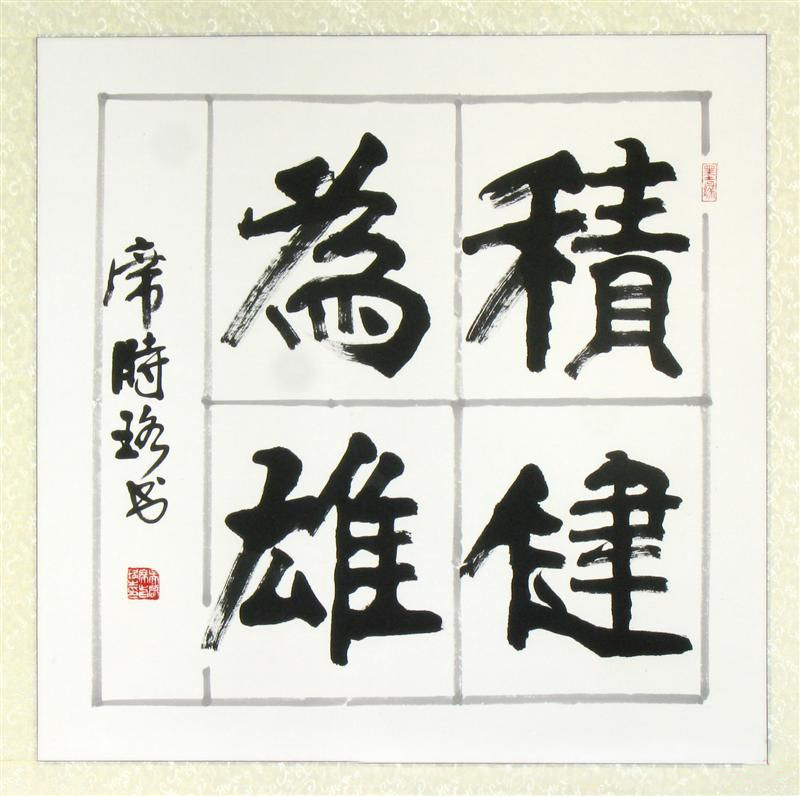 積健
為雄
席時珞书